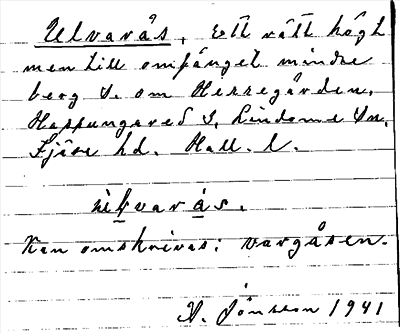 Ulvarås, Ett rätt högt
men till omfånget mindre
berg S. om Herregården,
Happungared S, Lindome Sn,
Fjäre hd. Hall. l.
ułvarås.
Kan omskrivas: vargåsen.
A. Jönsson 1941